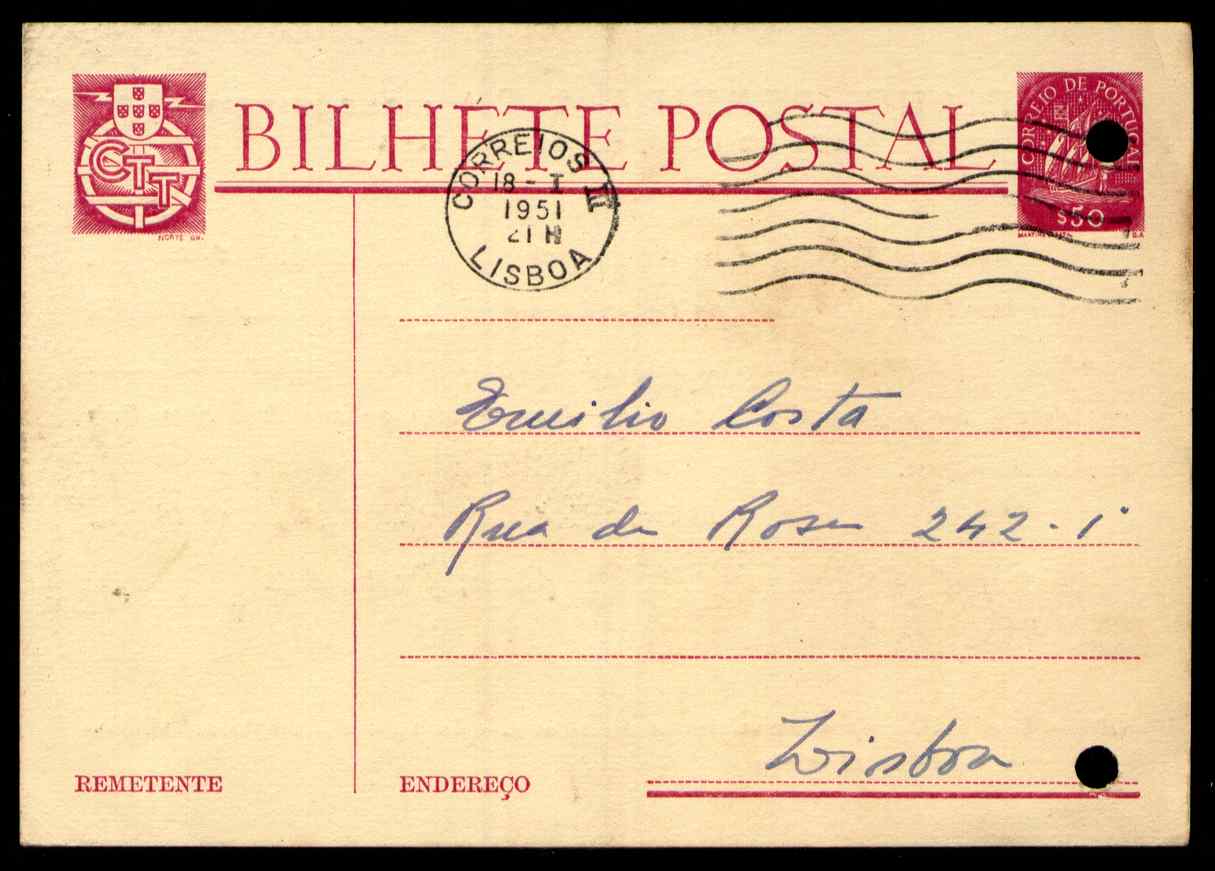 BILHETE POSTAL
CTT
NORTE GR.
CORREIO DE PORTUGAL
$50
CORREIOS III
18 - I
1951
21 H
LISBOA
Emilio Costa
Rua da Rosa 242-1º
Lisboa
REMETENTE
ENDEREÇO